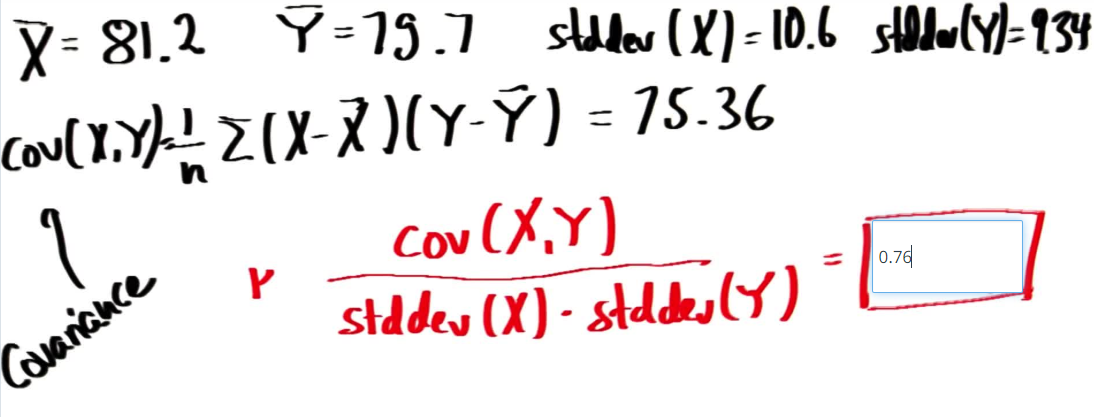 X̄ = 81.2 Ȳ = 79.7 stddev (X) = 10.6 stddev(Y) = 9.34
cov(X,Y) = 1/n Σ(X-X̄)(Y-Ȳ) = 75.36
Covariance
r cov(X,Y) / stddev(X) · stddev(Y) = 0.76